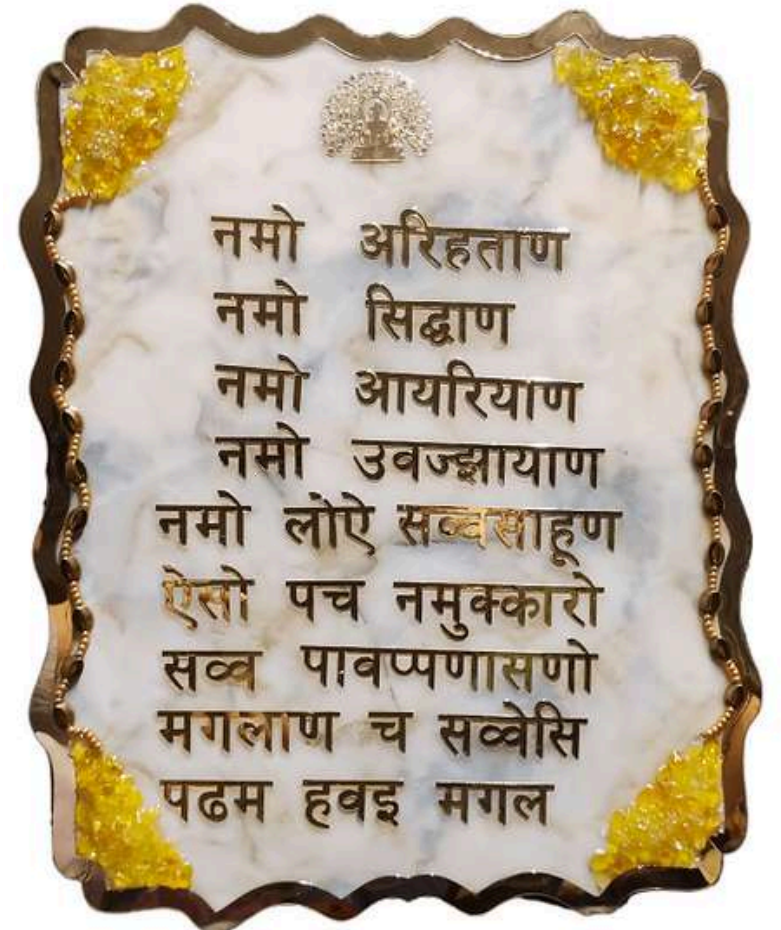 नमो अरिहताण
नमो सिद्धाण
नमो आयरियाण
नमो उवज्झायाण
नमो लोऐ सव्वसाहूण
ऐसो पच नमुक्कारो
सव्व पावप्पणासणो
मगलाण च सव्वेसि
पढम हवइ मगल